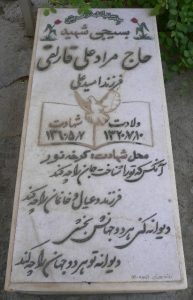 بسیجی شهید
حاج مراد علی قارلقی
فرزند امید علی
ولادت
شهادت
۱۳۲۰/۷/۱۰
۱۳۶۰/۵/۷
محل شهادت: کرخه نور
آنکس که تو را شناخت جان را چه کند
فرزند و عیال و خانمان را چه کند
دیوانه کنی هر دو جهانش بخشی
دیوانه تو هر دو جهان را چه کند